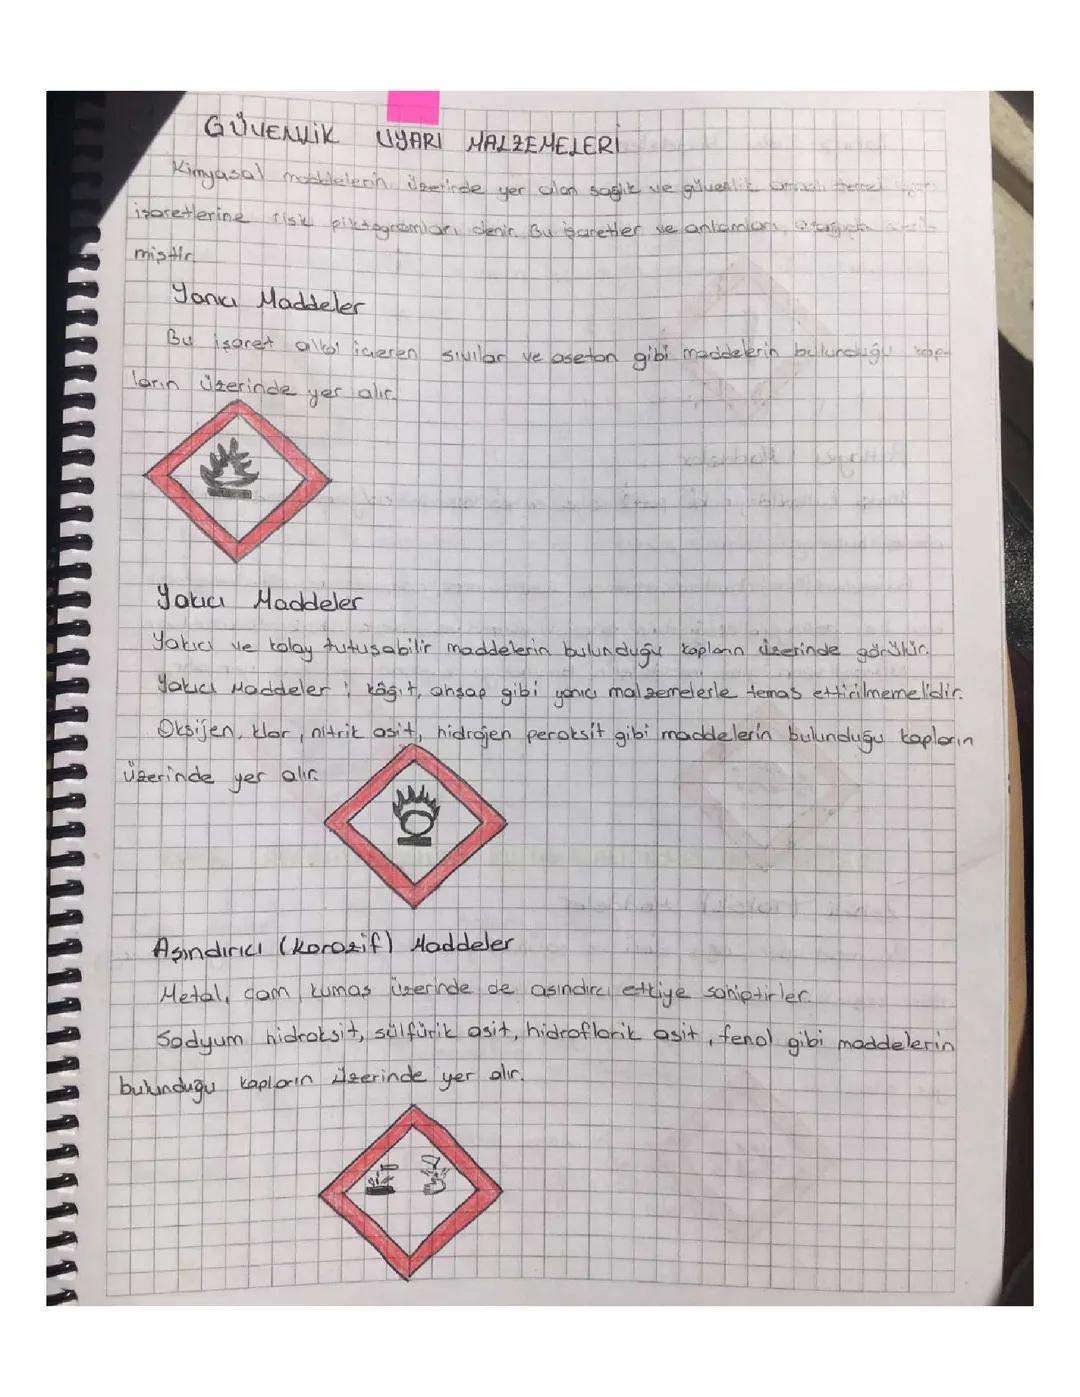 GÜVENLİK UYARI MALZEMELERİ
Kimyasal maddelerin üzerinde yer alan sağlık ve güvenlik amaçlı temel
işaretlerine risk piktogramları denir. Bu işaretler ve anlamları aşağıda
miştir.
Yanıcı Maddeler
Bu işaret alkol içeren sıvılar ve aseton gibi maddelerin bulunduğu kap-
ların üzerinde yer alır.
Yakıcı Maddeler
Yakıcı ve kolay tutuşabilir maddelerin bulunduğu kapların üzerinde görülür.
Yakıcı Maddeler ; kâğıt, ahşap gibi yanıcı malzemelerle temas ettirilmemelidir.
Oksijen, klor, nitrik asit, hidrojen peroksit gibi maddelerin bulunduğu kapların
üzerinde yer alır.
Aşındırıcı (Korozif) Maddeler
Metal, cam, kumaş üzerinde de aşındırıcı etkiye sahiptirler.
Sodyum hidroksit, sülfürik asit, hidroflorik asit, fenol gibi maddelerin
bulunduğu kapların üzerinde yer alır.